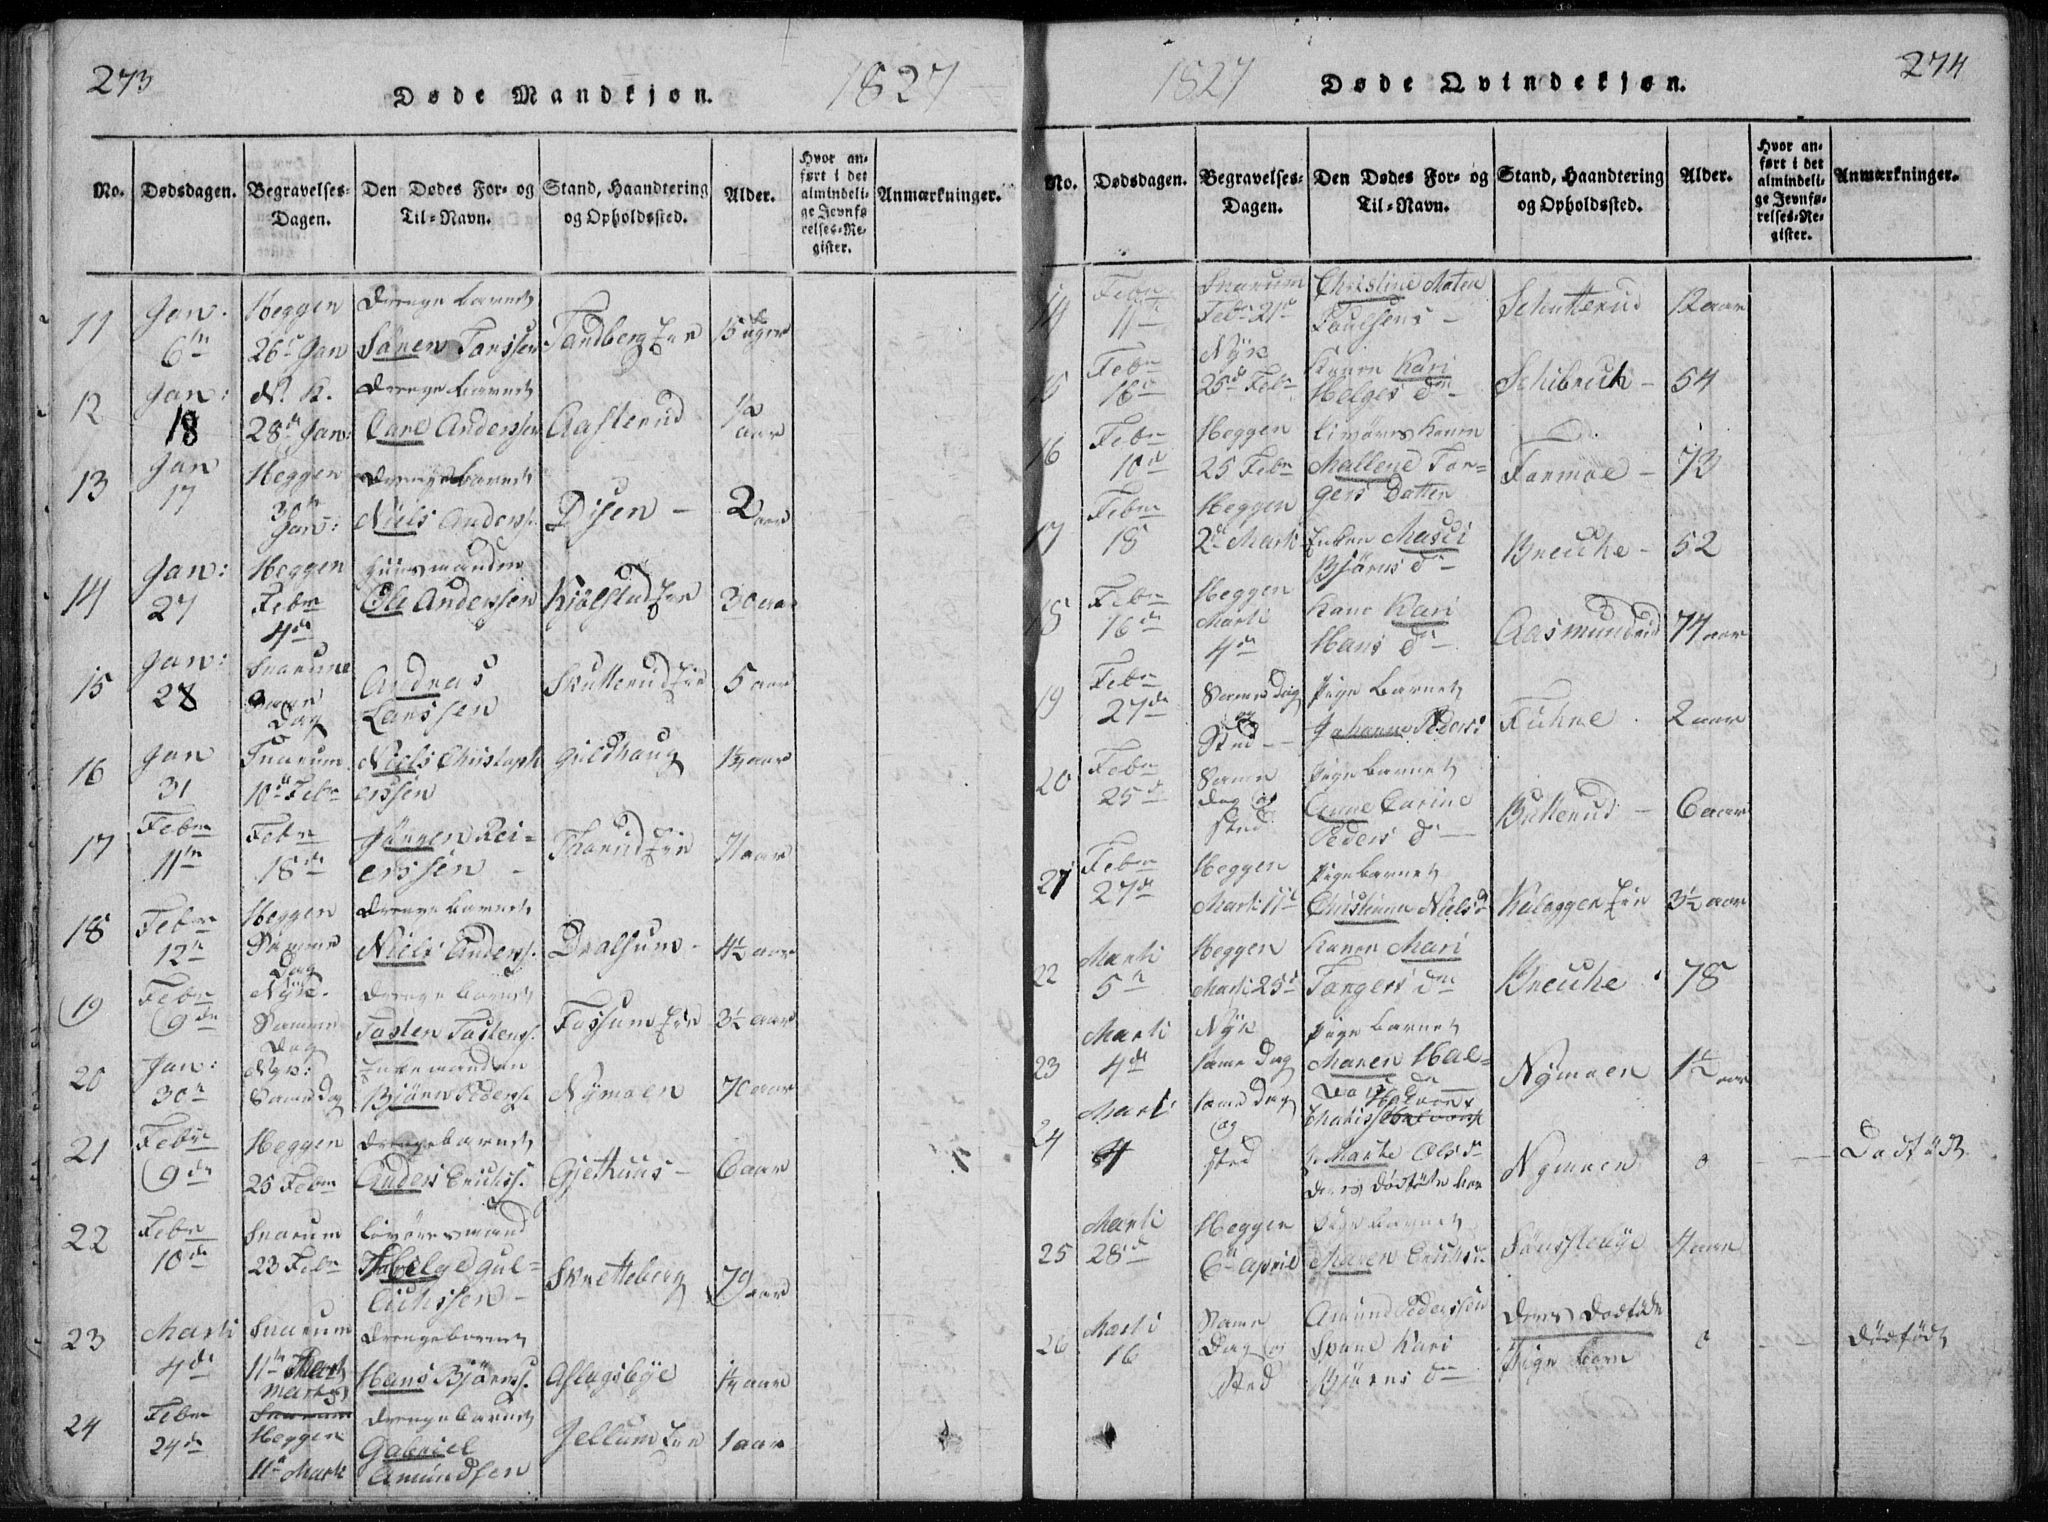 273
Døde Mandkjøn.
1827
No.
Dødsdagen.
Begravelses-
Dagen.
Den Dødes For- og
Til-Navn.
Stand, Haandtering
og Opholdssted.
Alder.
Hvor an-
ført i det
almindeli-
ge Jevnfø
relses-Re-
gister.
Anmærkninger.
11
Jan:
6te
Heggen
26de Jan
Drenge barnet
Sören
Tandberg Eie
15 uger
12
Jan:
18
N. K.
28de Jan:
Drenge barnet
Carl Anderssen
Aasterud
1/2
aar
13
Jan
17
Heggen
30te
Jan:
Drengebarnet
Niels Anderss.
Disen -
2 aar
14
Jan:
27
Heggen
Febr
4de
Huusmanden
Ole Anderssen
Kjölstad Eie
30 aar
15
Jan:
28
Snarum
Samme
Dag
Andreas
Larssen
Skutterud Eie
5 aar
16
Jan
31
Snarum
10de Febr
Niels Christoph
erssen
Guldhaug
17
Febr
11te
Febr
18de
Jörgen Rei-
erssen -
Thorud Eie
18
Febr
12te
Heggen
Samme
Dag
Drenge barnet
Niels Anderss.
Dralsum -
4 1/2 aar
19
Febr
9de
Nÿk.
Samme
Dag
Drenge barnet
Tosten Tostens.
Fossum Eie
3 1/2 aar
20
Jan:
30te
Nyk:
Same Dag
Enkemanden
Björn Peders.
Nÿmoen
70 aar
21
Febr
9de
Heggen
25 Febr
Drengebarnet
Anders Erichss.
Gjethuus -
6 aar
22
Febr
10de
Snarum
23 Febr
Livöresmand
Helge Gul-
Skretteberg
79
aar
23
Marti
4de
Snarum
11te
Marty
Drengebarnet
Hans Björnss.
Aslagsbÿe
24
Febr
24de
Snarum
Heggen
11te Marti
Drengebarnet
Gabriel
Amundsen
Jellum Eie
1 aar
1827
Døde Qvindekjøn.
274
No.
Dødsdagen.
Begravelses-
Dagen.
Den Dødes For- og
Til-Navn.
Stand, Haandtering
og Opholdssted.
Alder.
Hvor an-
ført i det
almindeli-
ge Jevnfø-
relses-Re-
gister.
Anmærkninger.
14
Febr
11te
Snarum
Febr 21de
Christine Maten
Paulsens -
Schutterud
12 aar
15
Febr
16de
Nÿk
25de Febr
Konen Kari
Helges Dtr -
54
16
Febr
10de
Heggen
25 Febr
Livöres Konen
Mallene Tor-
gers Datter
Formoe -
73
17
Febr
18
Heggen
2de Marti
Enken Masci
Björns Dtr
52
18
Febr
16de
Heggen
Marti
4de
Kone Kari
Hans D -
Aasmundrud
74 aar
19
Febr
27de
Same Dag
og
Sted -
Pige Barnet
Johanne Peders
2 aar
20
Febr
25de
Samme
dag og
sted
Pige barnet
Anne Carine
Peders D -
Butterud -
6 aar
21
Febr
27de
Heggen
Marti 11te
Pigebarnet
Christiane Niels D
Kalaggen Eie
3 1/2 aar
22
Marti
5te
Heggen
Marti 25de
Konen Mari
Torgers Dtr
78
23
Marti
4de
Nÿk
same Dag
Pige barnet
Maren Hal-
Nÿmoen
1 1/2
aar
24
Marti
4
same Dag
og
sted
Marte Ols D
deres dödföde
Nÿmoen
0
Dödfödt
25
Marti
28de
Heggen
6te April
Pige barnet
Maren Erichs D
Sönsstebÿe
4 aar
26
Marti
16
Same
Dag og
Sted
Amund Pederssen
Spone Kari
Björns D
deres dödföde
Pige barn
0
dödfödt